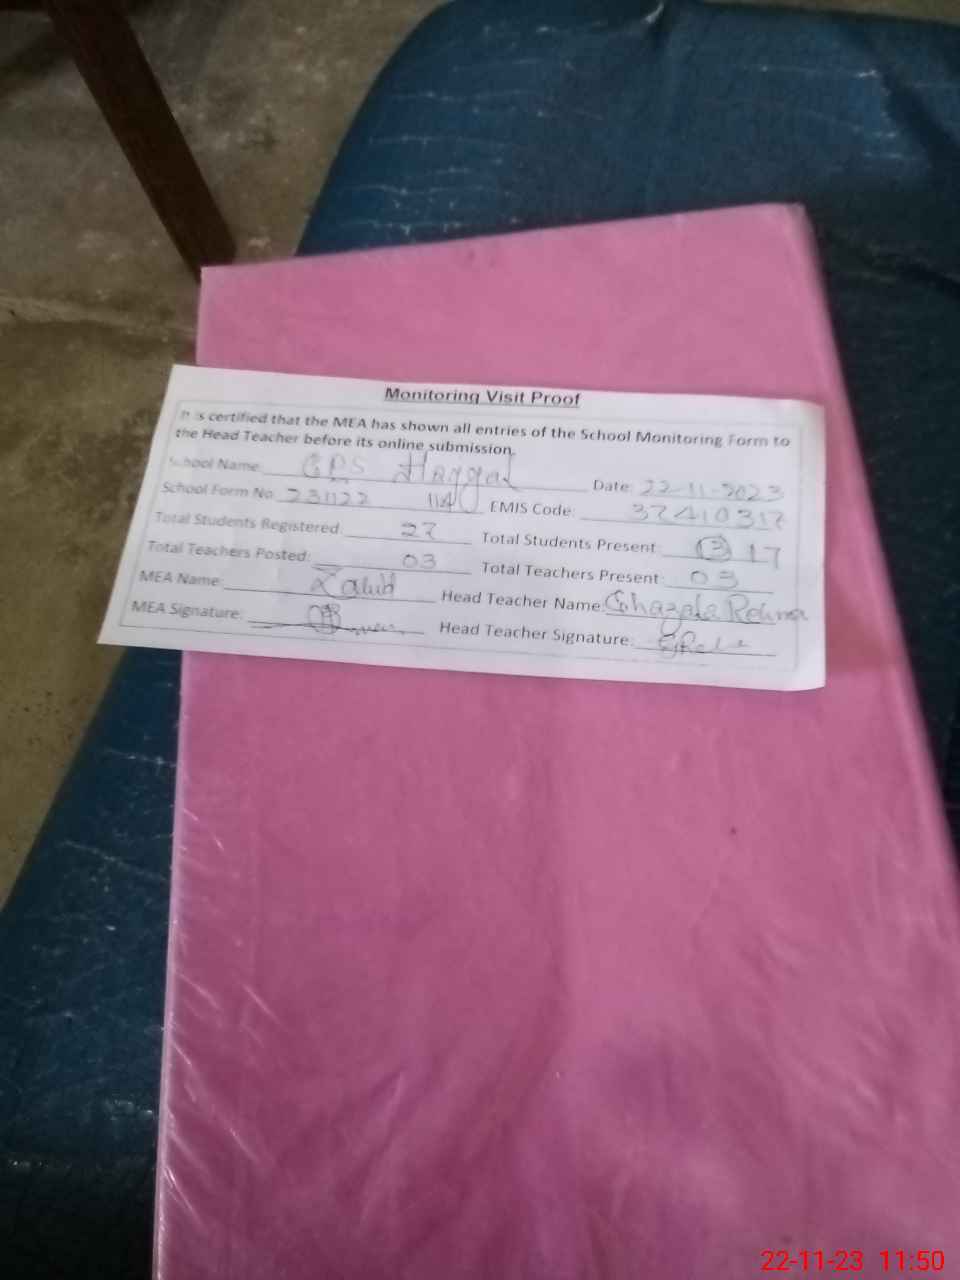 Monitoring Visit Proof
It is certified that the MEA has shown all entries of the School Monitoring Form to
the Head Teacher before its online submission.
School Name: GPS Haygal Date: 22-11-2023
School Form No. 231122 114 EMIS Code: 37410317
Total Students Registered: 27 Total Students Present: 17
Total Teachers Posted: 03 Total Teachers Present: 03
MEA Name: Zahid Head Teacher Name: Ghazala
MEA Signature: Head Teacher Signature:
22-11-23 11:50